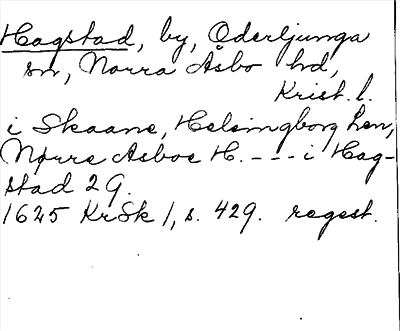 Hagstad, by, Oderljunga
sn, Norra Åsbo hd,
Krist. l.
i Skaane, Helsingborg Len,
Nørre Asboe H. --- i Hag-
stad 2 G.
1625 KrSk 1, s. 429. regest.